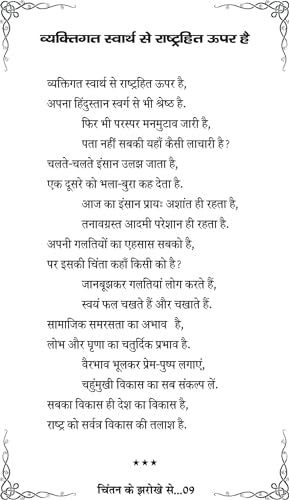 व्यक्तिगत स्वार्थ से राष्ट्रहित ऊपर है
व्यक्तिगत स्वार्थ से राष्ट्रहित ऊपर है,
अपना हिंदुस्तान स्वर्ग से भी श्रेष्ठ है.
फिर भी परस्पर मनमुटाव जारी है,
पता नहीं सबकी यहाँ कैसी लाचारी है?
चलते-चलते इंसान उलझ जाता है,
एक दूसरे को भला-बुरा कह देता है.
आज का इंसान प्रायः अशांत ही रहता है,
तनावग्रस्त आदमी परेशान ही रहता है.
अपनी गलतियों का एहसास सबको है,
पर इसकी चिंता कहाँ किसी को है?
जानबूझकर गलतियां लोग करते हैं,
स्वयं फल चखते हैं और चखाते हैं.
सामाजिक समरसता का अभाव है,
लोभ और घृणा का चतुर्दिक प्रभाव है.
वैरभाव भूलकर प्रेम-पुष्प लगाएं,
चहुंमुखी विकास का सब संकल्प लें.
सबका विकास ही देश का विकास है,
राष्ट्र को सर्वत्र विकास की तलाश है.
***
चिंतन के झरोखे से...09